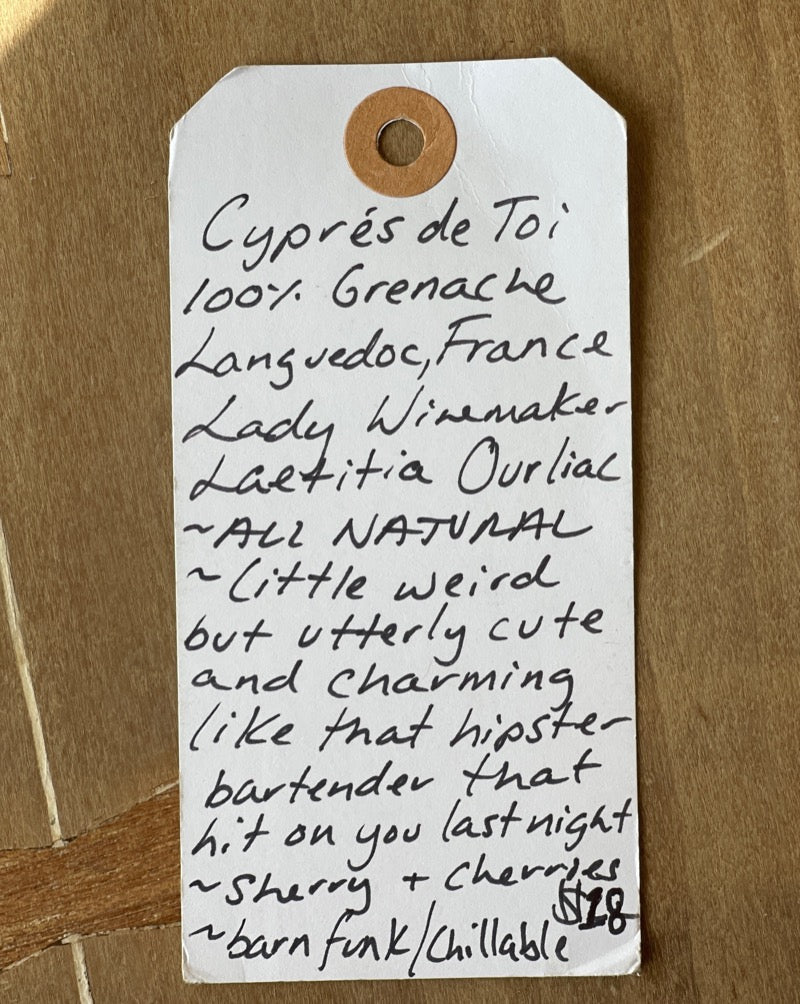 Cyprés de Toi
100% Grenache
Languedoc, France
Lady Winemaker
Laetitia Ourliac
~ALL NATURAL
~little weird
but utterly cute
and charming
like that hipster
bartender that
hit on you last night
~Sherry + Cherries
$18
~barn funk/Chillable